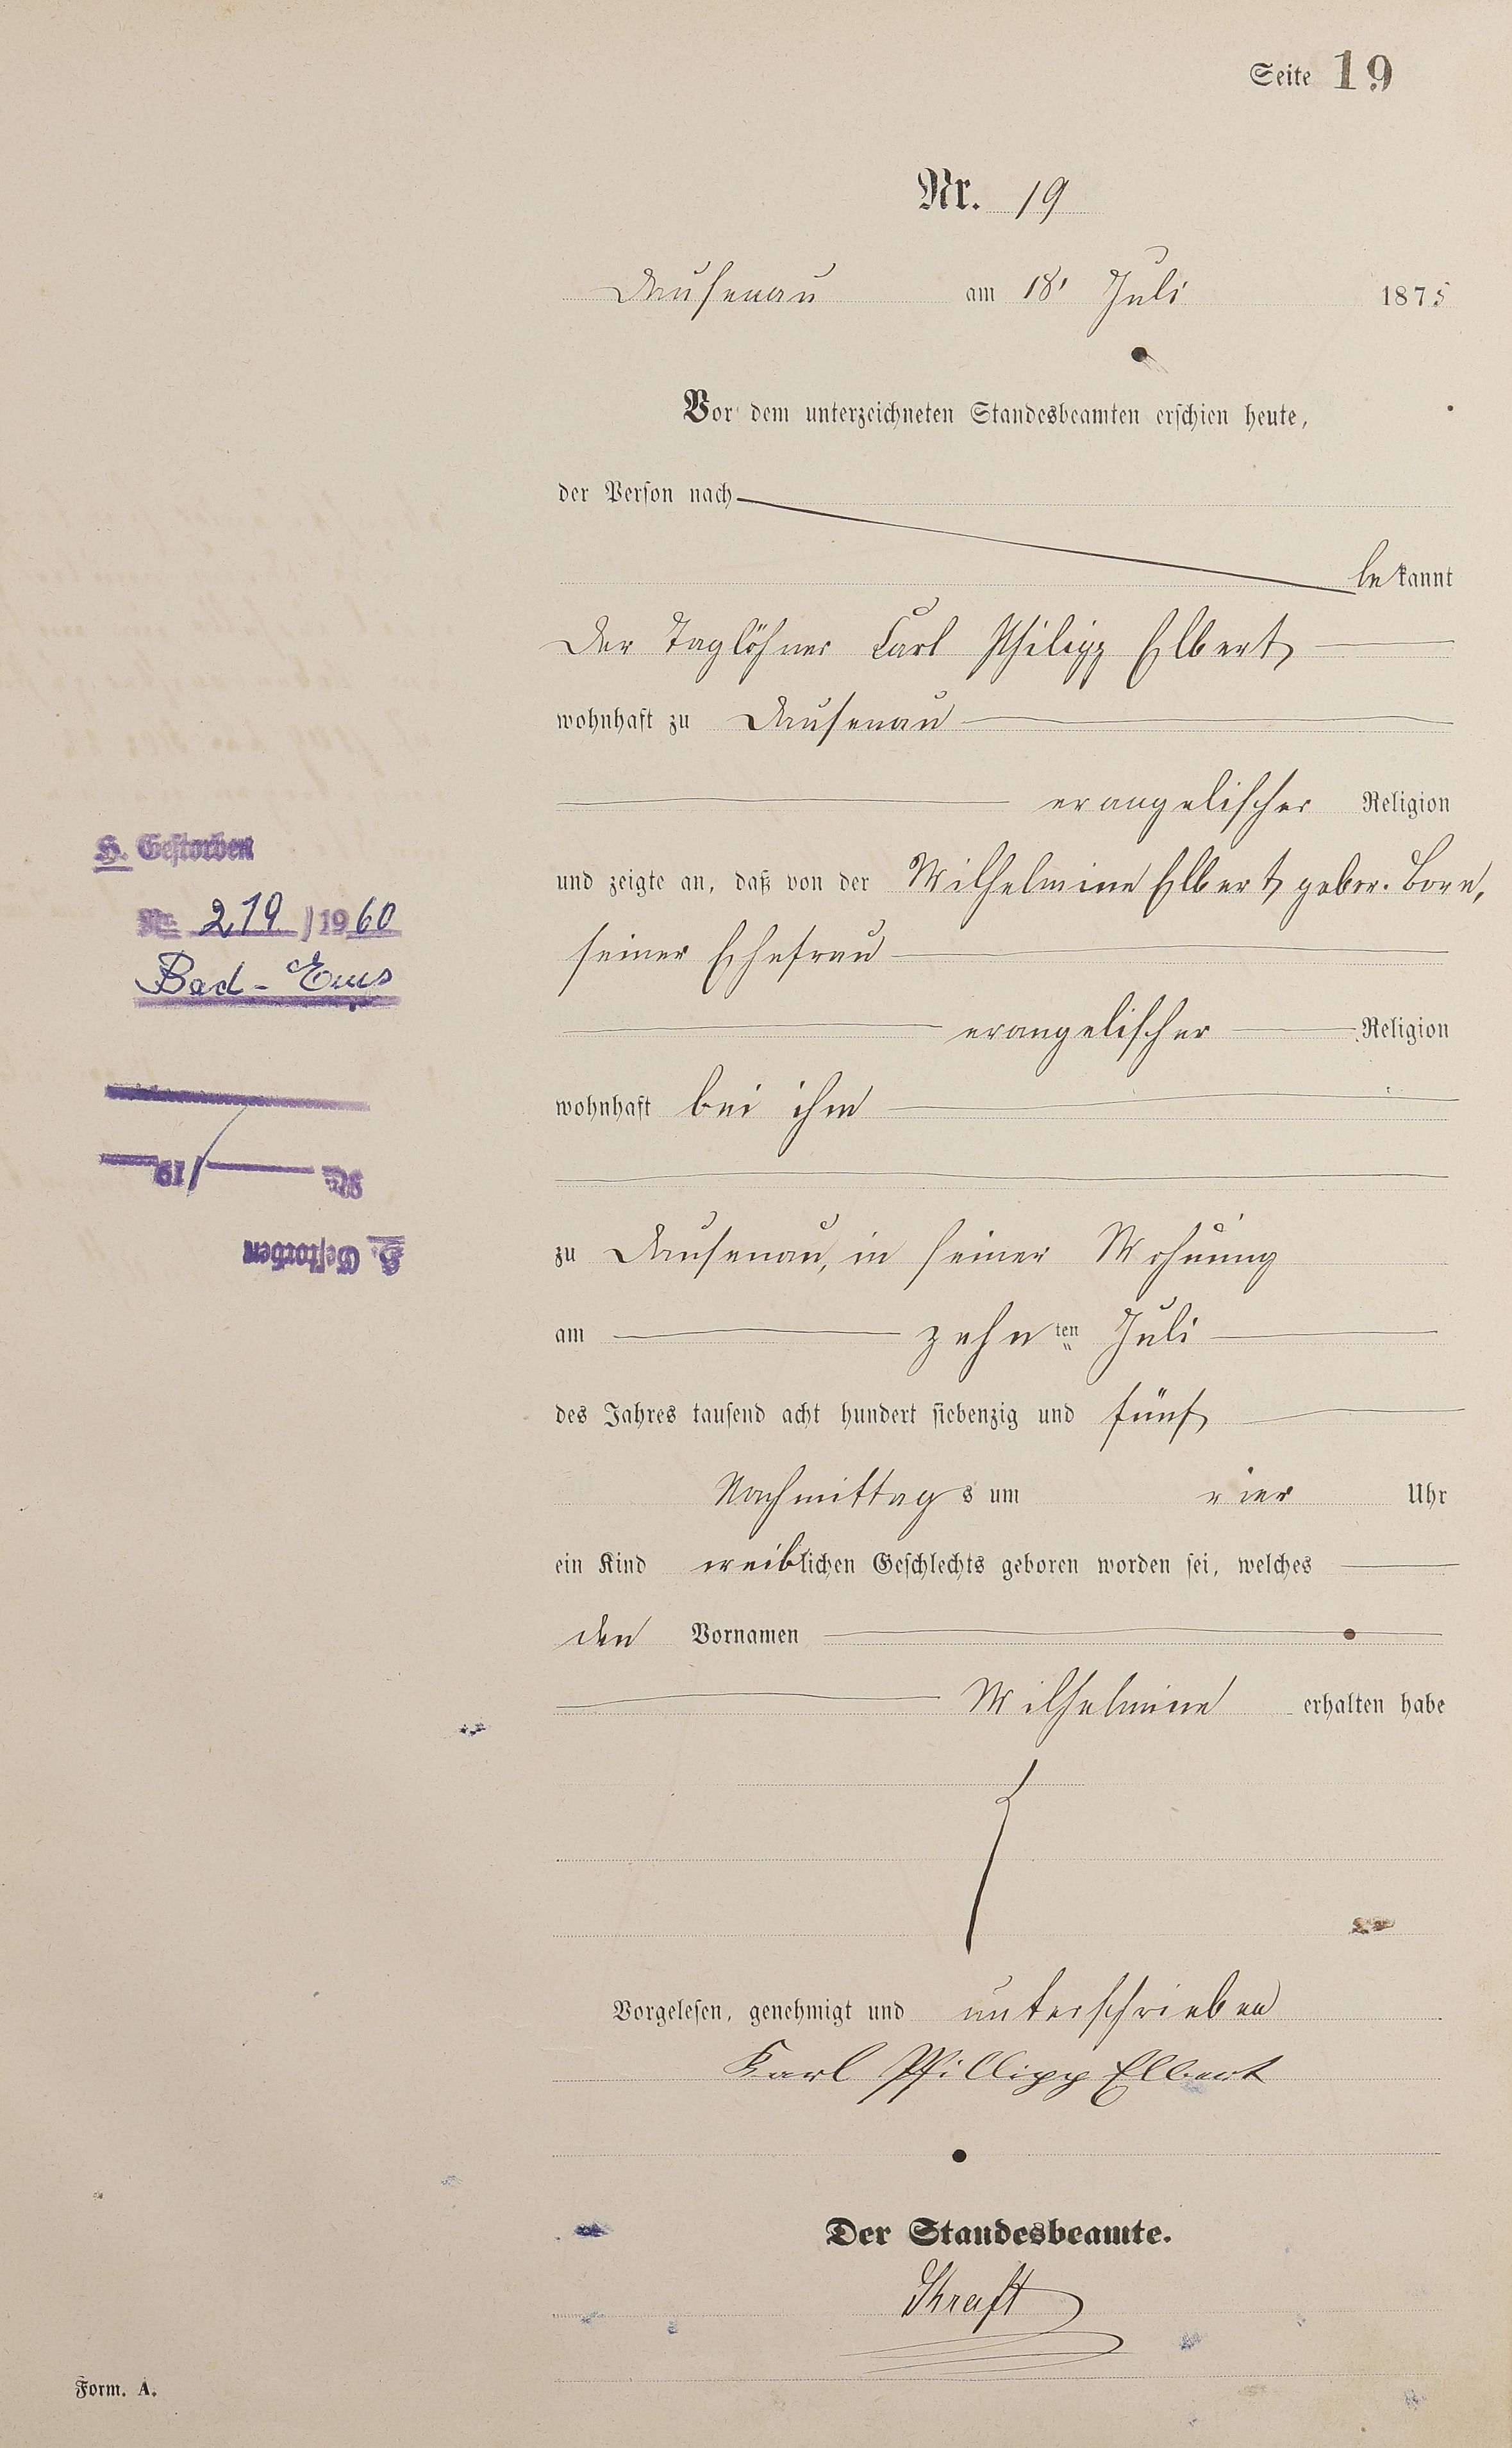 Seite 19
Nr. 19
Dausenau am 18' Juli 1875
Vor dem unterzeichneten Standesbeamten erschien heute,
der Person nach
bekannt
Der Taglöhner Carl Philipp Elbert
wohnhaft zu Dausenau
evangelischer Religion
und zeigte an, daß von der Wilhelmine Elbert, gebor. Born,
seiner Ehefrau
evangelischer Religion
wohnhaft bei ihm
zu Dausenau, in seiner Wohnung
am zehnten Juli
des Jahres tausend acht hundert siebenzig und fünf
Nachmittags um vier Uhr
ein Kind weiblichen Geschlechts geboren worden sei, welches
den Vornamen
Wilhelmine erhalten habe
Vorgelesen, genehmigt und unterschrieben
Karl Phillipp Elbert
Der Standesbeamte.
Form. A.
H. Gestorben
Nr. 219 / 1960
Bad-Ems
H. Gestorben
Nr. / 19